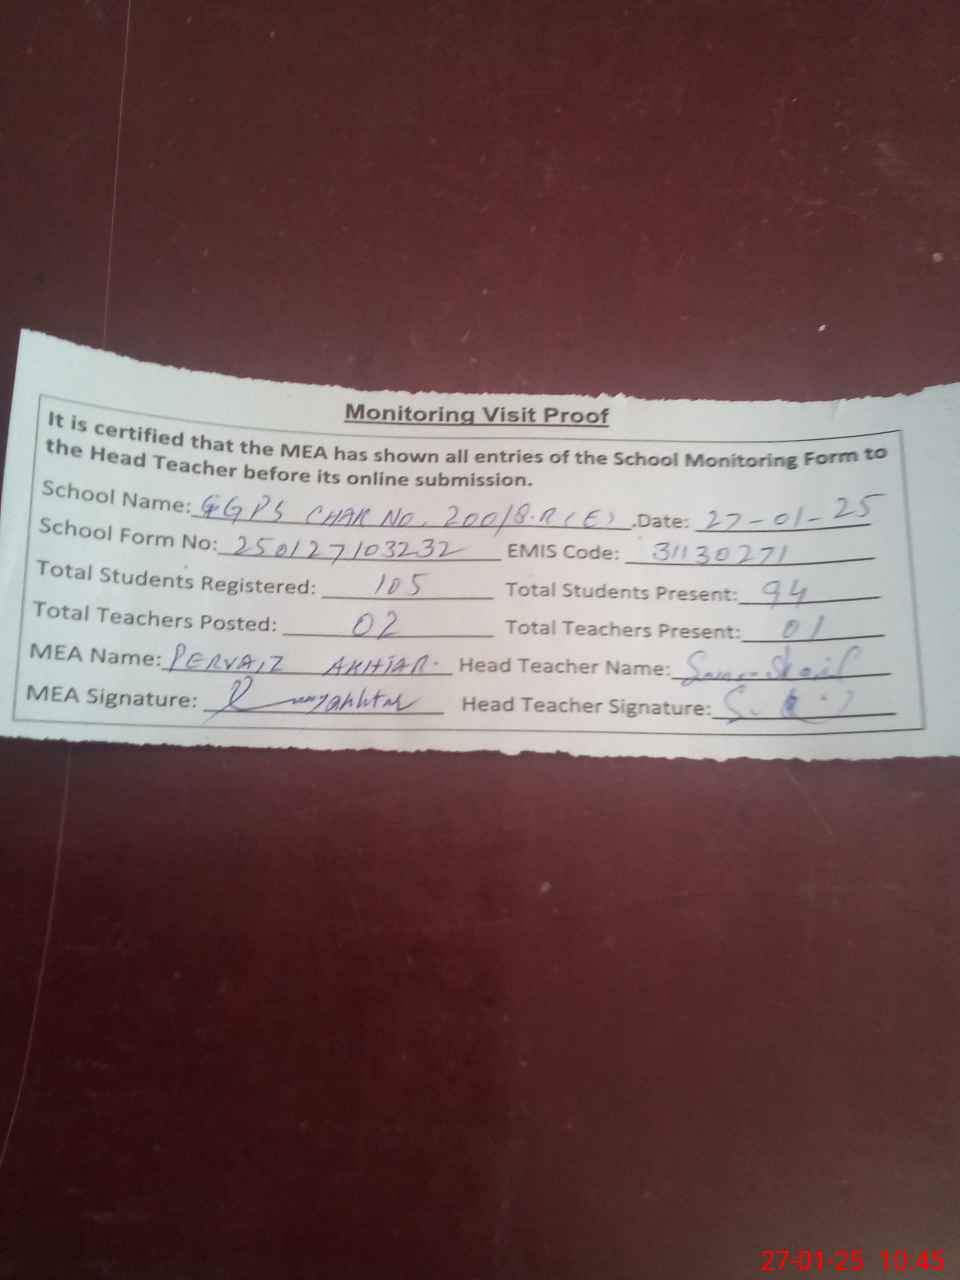 Monitoring Visit Proof
It is certified that the MEA has shown all entries of the School Monitoring Form to
the Head Teacher before its online submission.
School Name: GGPS CHAK NO. 200/8.R(E) .Date: 27-01-25
School Form No: 250127103232 EMIS Code: 31130271
Total Students Registered: 105 Total Students Present: 94
Total Teachers Posted: 02 Total Teachers Present: 01
MEA Name: PERVAIZ AKHTAR. Head Teacher Name:
MEA Signature: Head Teacher Signature:
27-01-25 10:45